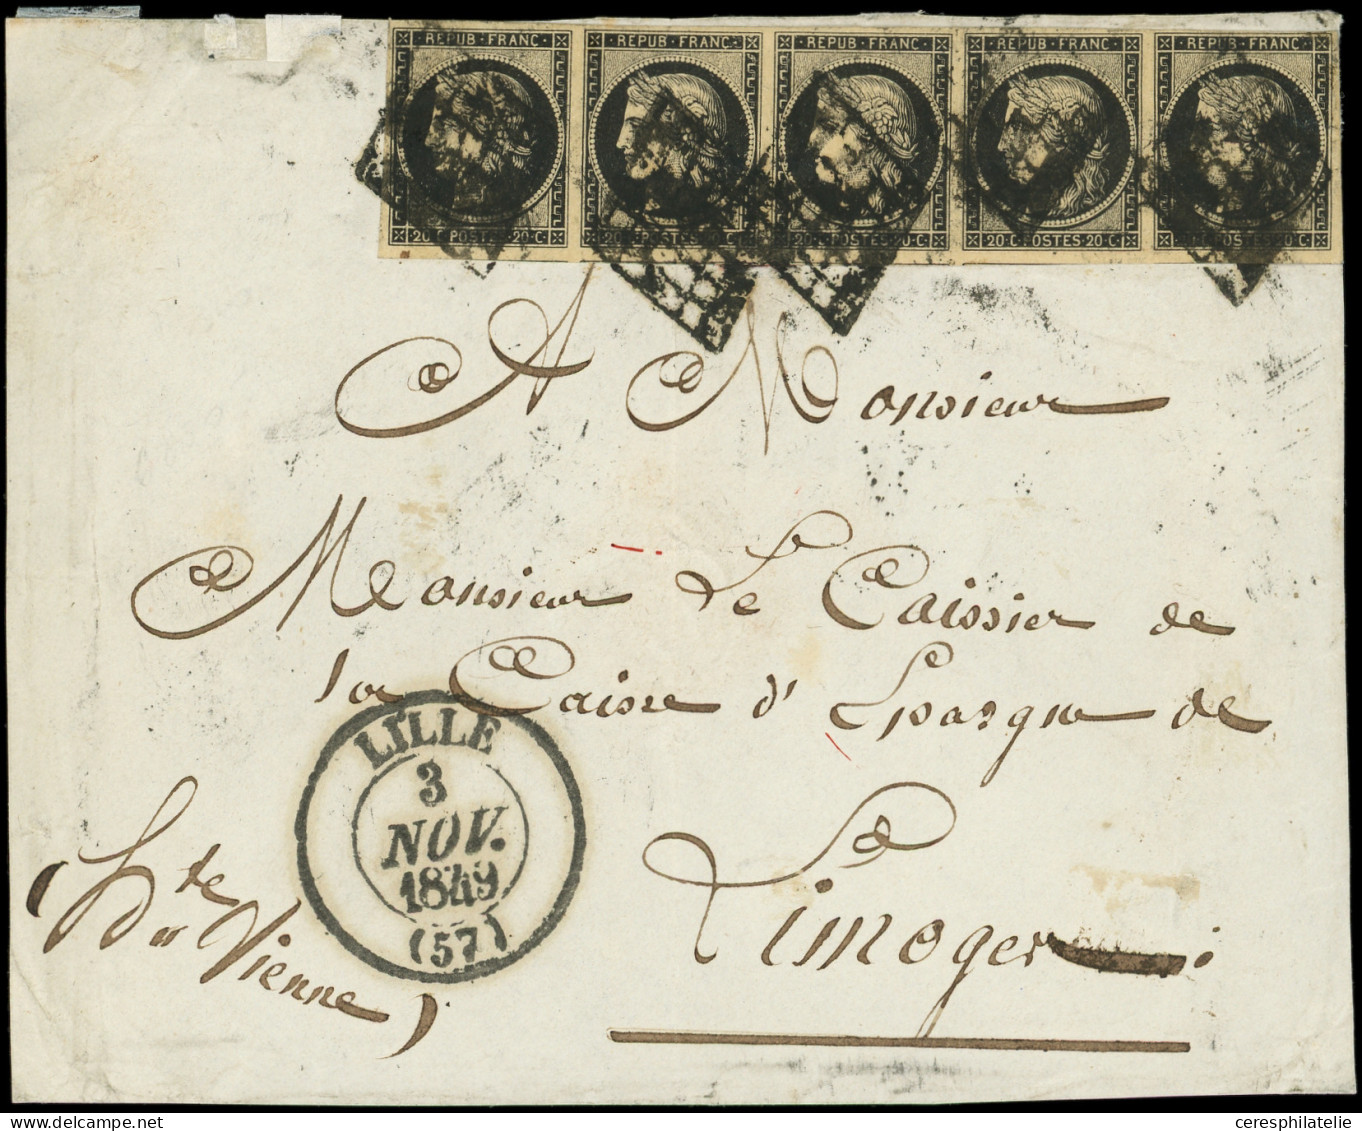 REPUB·FRANC· REPUB·FRANC· REPUB·FRANC· REPUB·FRANC· REPUB·FRANC·
20·C·POSTES·20·C· 20·C·POSTES·20·C· 20·C·POSTES·20·C· 20·C·POSTES·20·C· 20·C·POSTES·20·C·
A Monsieur
Monsieur Le Caissier de
la Caisse d'Epargne de
Limoges
(Hte Vienne)
LILLE
3
NOV.
1849
(57)
ceresphilatelie